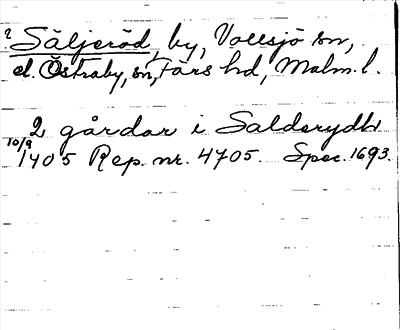 ? Säljeröd, by, Vollsjö sn,
el. Östraby, sn, Färs hd, Malm. l.
2 gårdar i Salderydh
10/9 1405 Rep. nr. 4705. Spec. 1693.